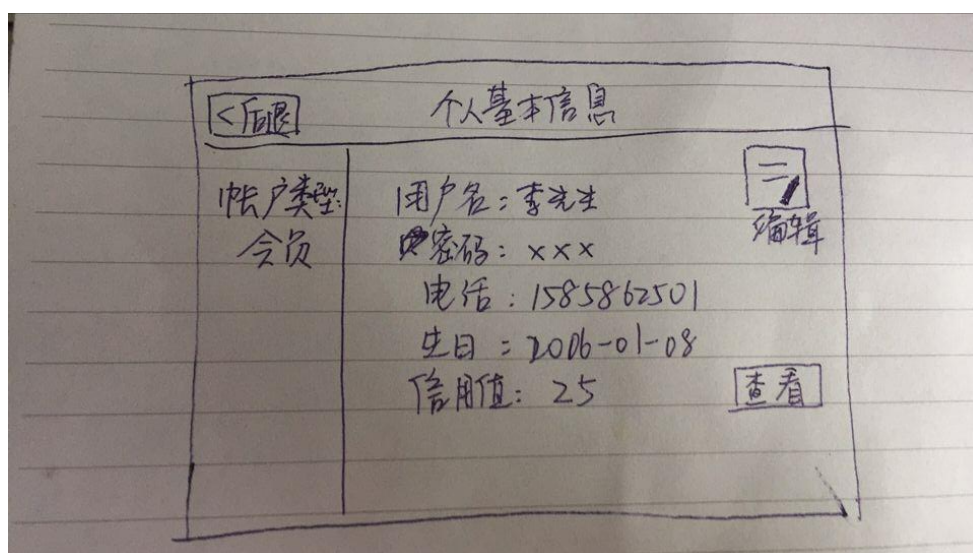 <后退
个人基本信息
帐户类型:
会员
用户名:李先生
密码:×××
电话:1585862501
生日:2006-01-08
信用值:25
编辑
查看